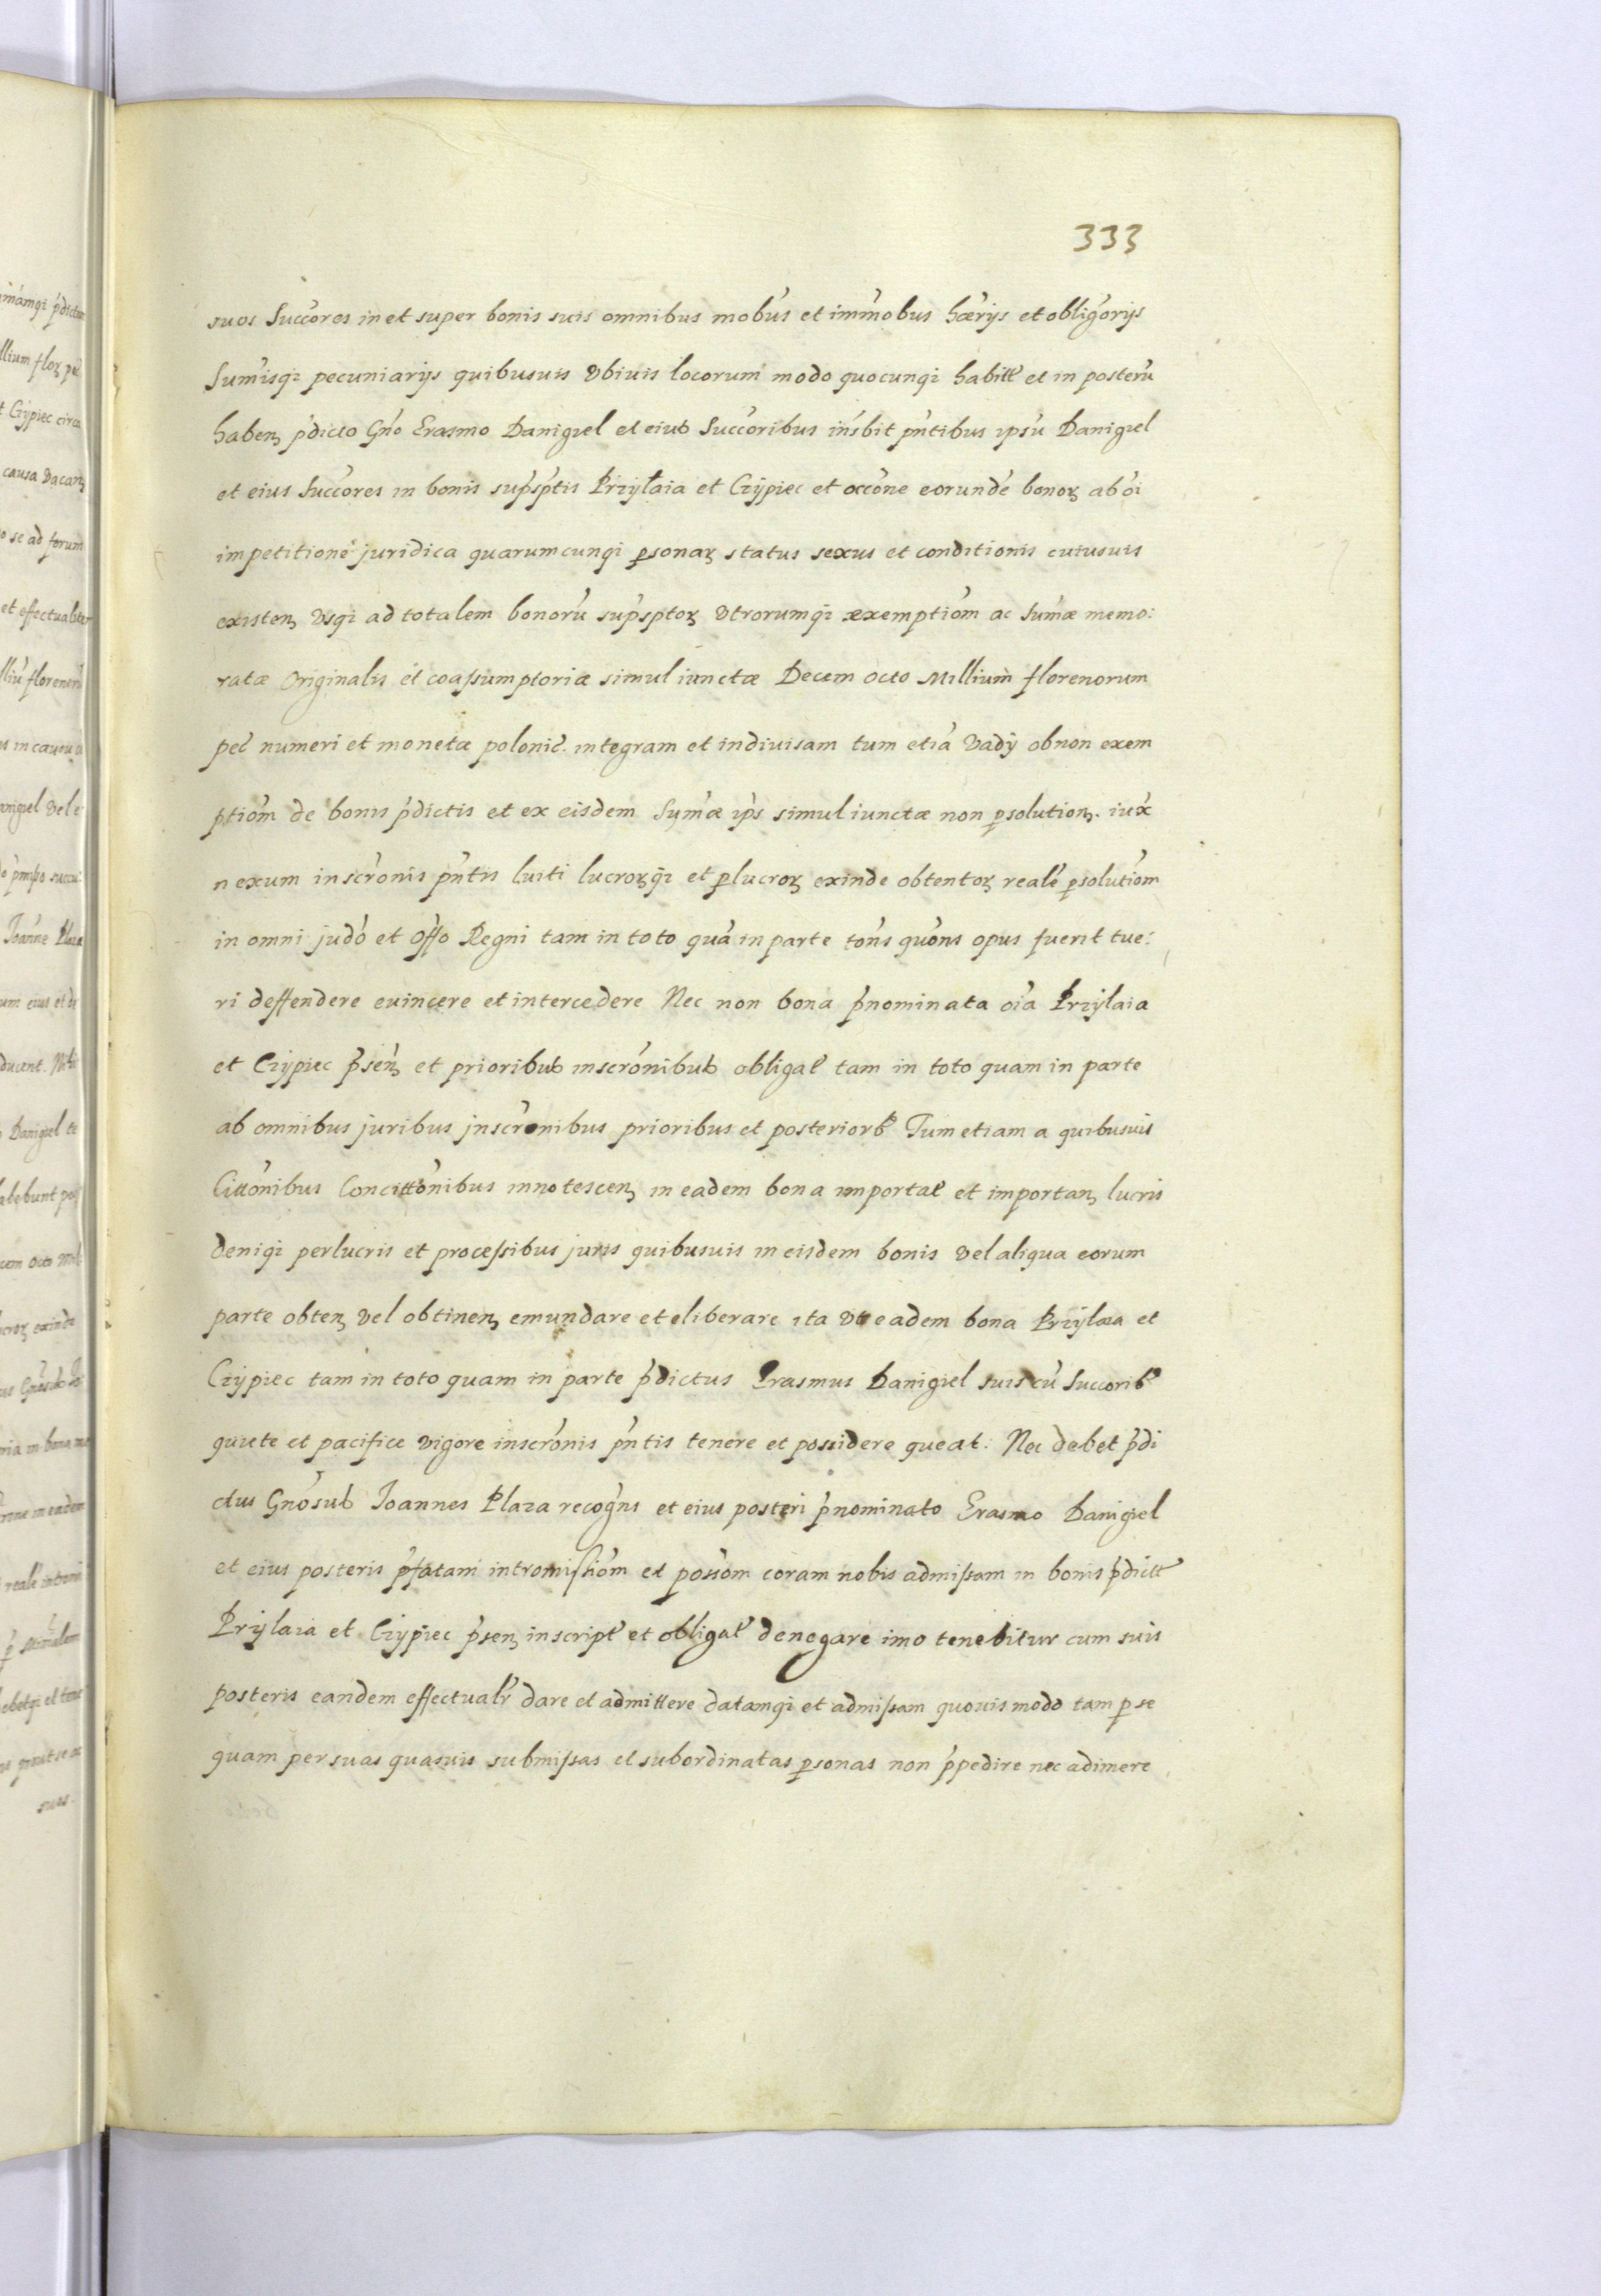 333
suos Succ̉ores in et super bonis suis omnibus mob̉us et im̉mobus hærijs et oblig̉orijs
Sum̉isqꝫ pecuniarijs quibusuis vbiuis locorum modo quocunqꝫ habitt̉ et in posterũ
habenꝫ p̉dicto Gñ̉o Erasmo Danigiel et eius Succ̉oribus inśbit pñtibus ipsũ Danigiel
et eius Succ̉ores in bonis sup̉sp̉tis Przyłaia et Czÿpiec et occ̉one eorundẽ bonoꝝ ab ỏi
impetitionẽ juridica quarumcunqꝫ ꝑsonaꝝ status sexus et conditionis cuiusuis
existenꝫ vsqꝫ ad totalem bonorũ sup̉sptoꝝ vtrorumqꝫ exemptiỏm ac Sum̃æ memo:
ratæ Originalis et coaſsumptoriæ simul iunctæ Decem octo Millium florenorum
pec̉ numeri et monetæ polonic̉. integram et indiuisam tum etiã vadÿ ob non exem
ptiỏm de bonis p̉dictis et ex eisdem Sum̃æ ip̉s simul iunctæ non ꝑsolutionꝫ. iux̉
nexum inscr̉onis pñtis luiti lucroꝝqꝫ et ꝑlucroꝝ exinde obtentoꝝ realẽ ꝑsolutiỏm
in omni jud̉o et Offo Regni tam in toto quã in parte toñs quoñs opus fuerit tue:
ri deffendere euincere et intercedere Nec non bona p̉nominata oĩa Przÿlaia
et Czÿpiec p̉senꝫ et prioribus inscr̉onibus obligat̉ tam in toto quam in parte
ab omnibus juribus jnscr̉onibus prioribus et posteriorb̉ Tum etiam a quibusuis
Citt̉onibus Concitt̉onibus innotescenꝫ in eadem bona importat̉ et importanꝫ lucris
deniqꝫ perlucris et proceſsibus juris quibusuis in eisdem bonis vel aliqua eorum
parte obtenꝫ vel obtinenꝫ emundare et eliberare ita vt eadem bona Przÿlaia et
Czÿpiec tam in toto quam in parte p̉dictus Erasmus Danigiel suis cũ Succorib̉
quiete et pacifice vigore inscr̉onis pñtis tenere et possidere queat: Nec debet p̉di
ctus Gnõsus Joannes Plaza recogñs et eius posteri p̉nominato Erasmo Danigiel
et eius posteris p̉fatam intromiſsiỏm et poss̉om coram nobis admiſsam in bonis p̉dictt̉
Przÿlaia et Czÿpiec p̉senꝫ inscript̉ et obligat̉ denegare imo tenebitur cum suis
posteris eandem effectualr̉ dare et admittere datamqꝫ et admiſsam quouis modo tam ꝑ se
quam per suas quasuis submiſsas et subordinatas ꝑsonas non p̉pedire nec adimere